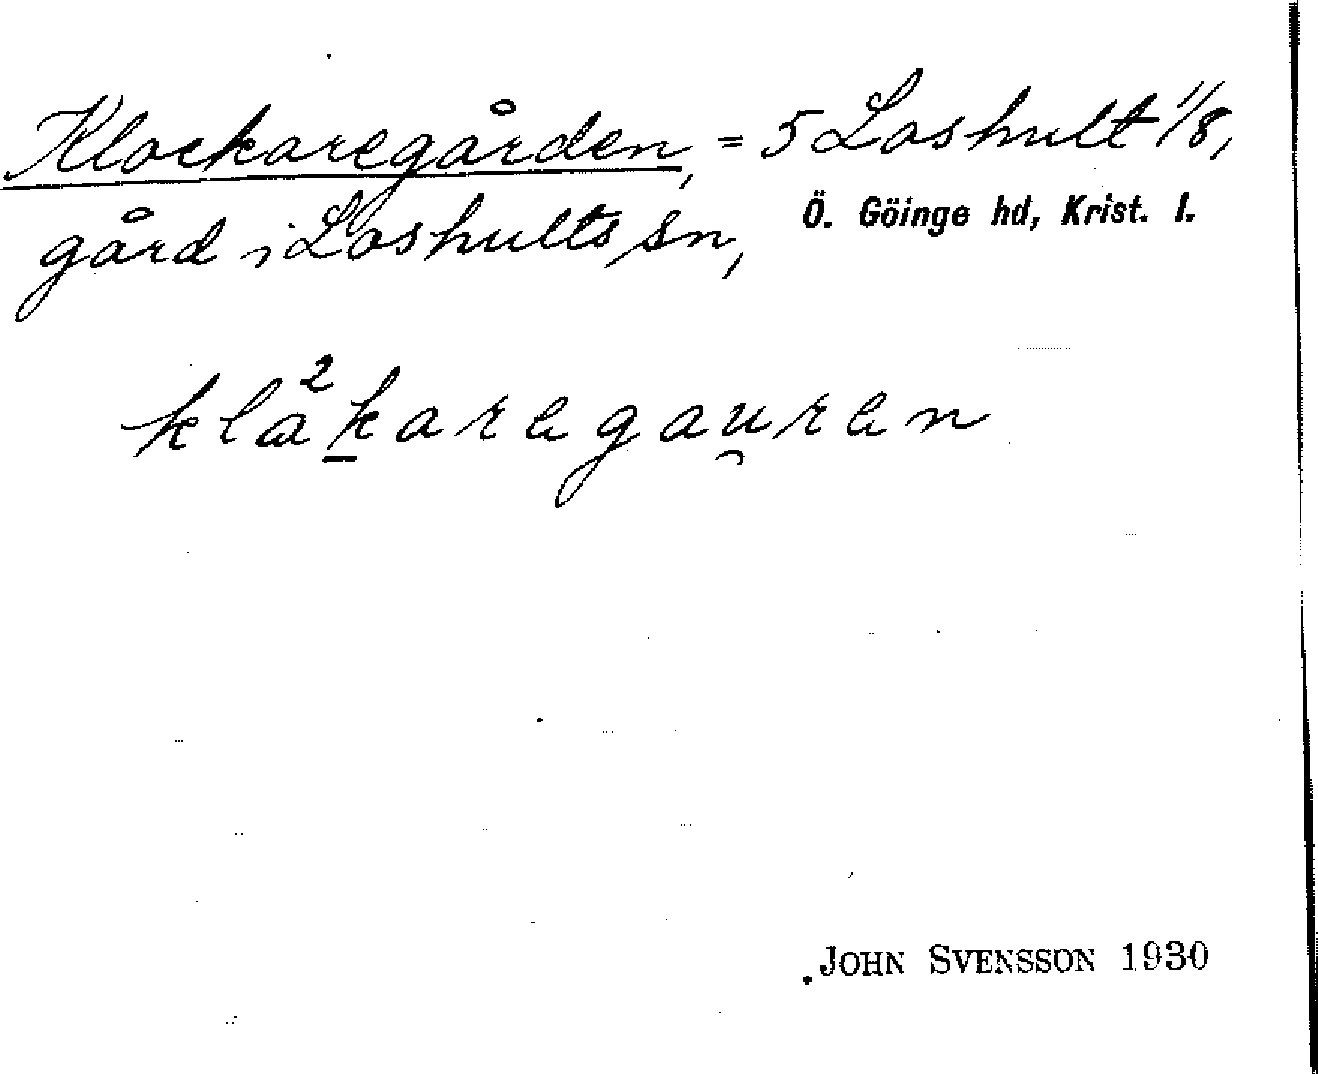 Klockaregården, = 5 Loshult 1/8,
gård i Loshults sn, Ö. Göinge hd, Krist. l.
JOHN SVENSSON 1930